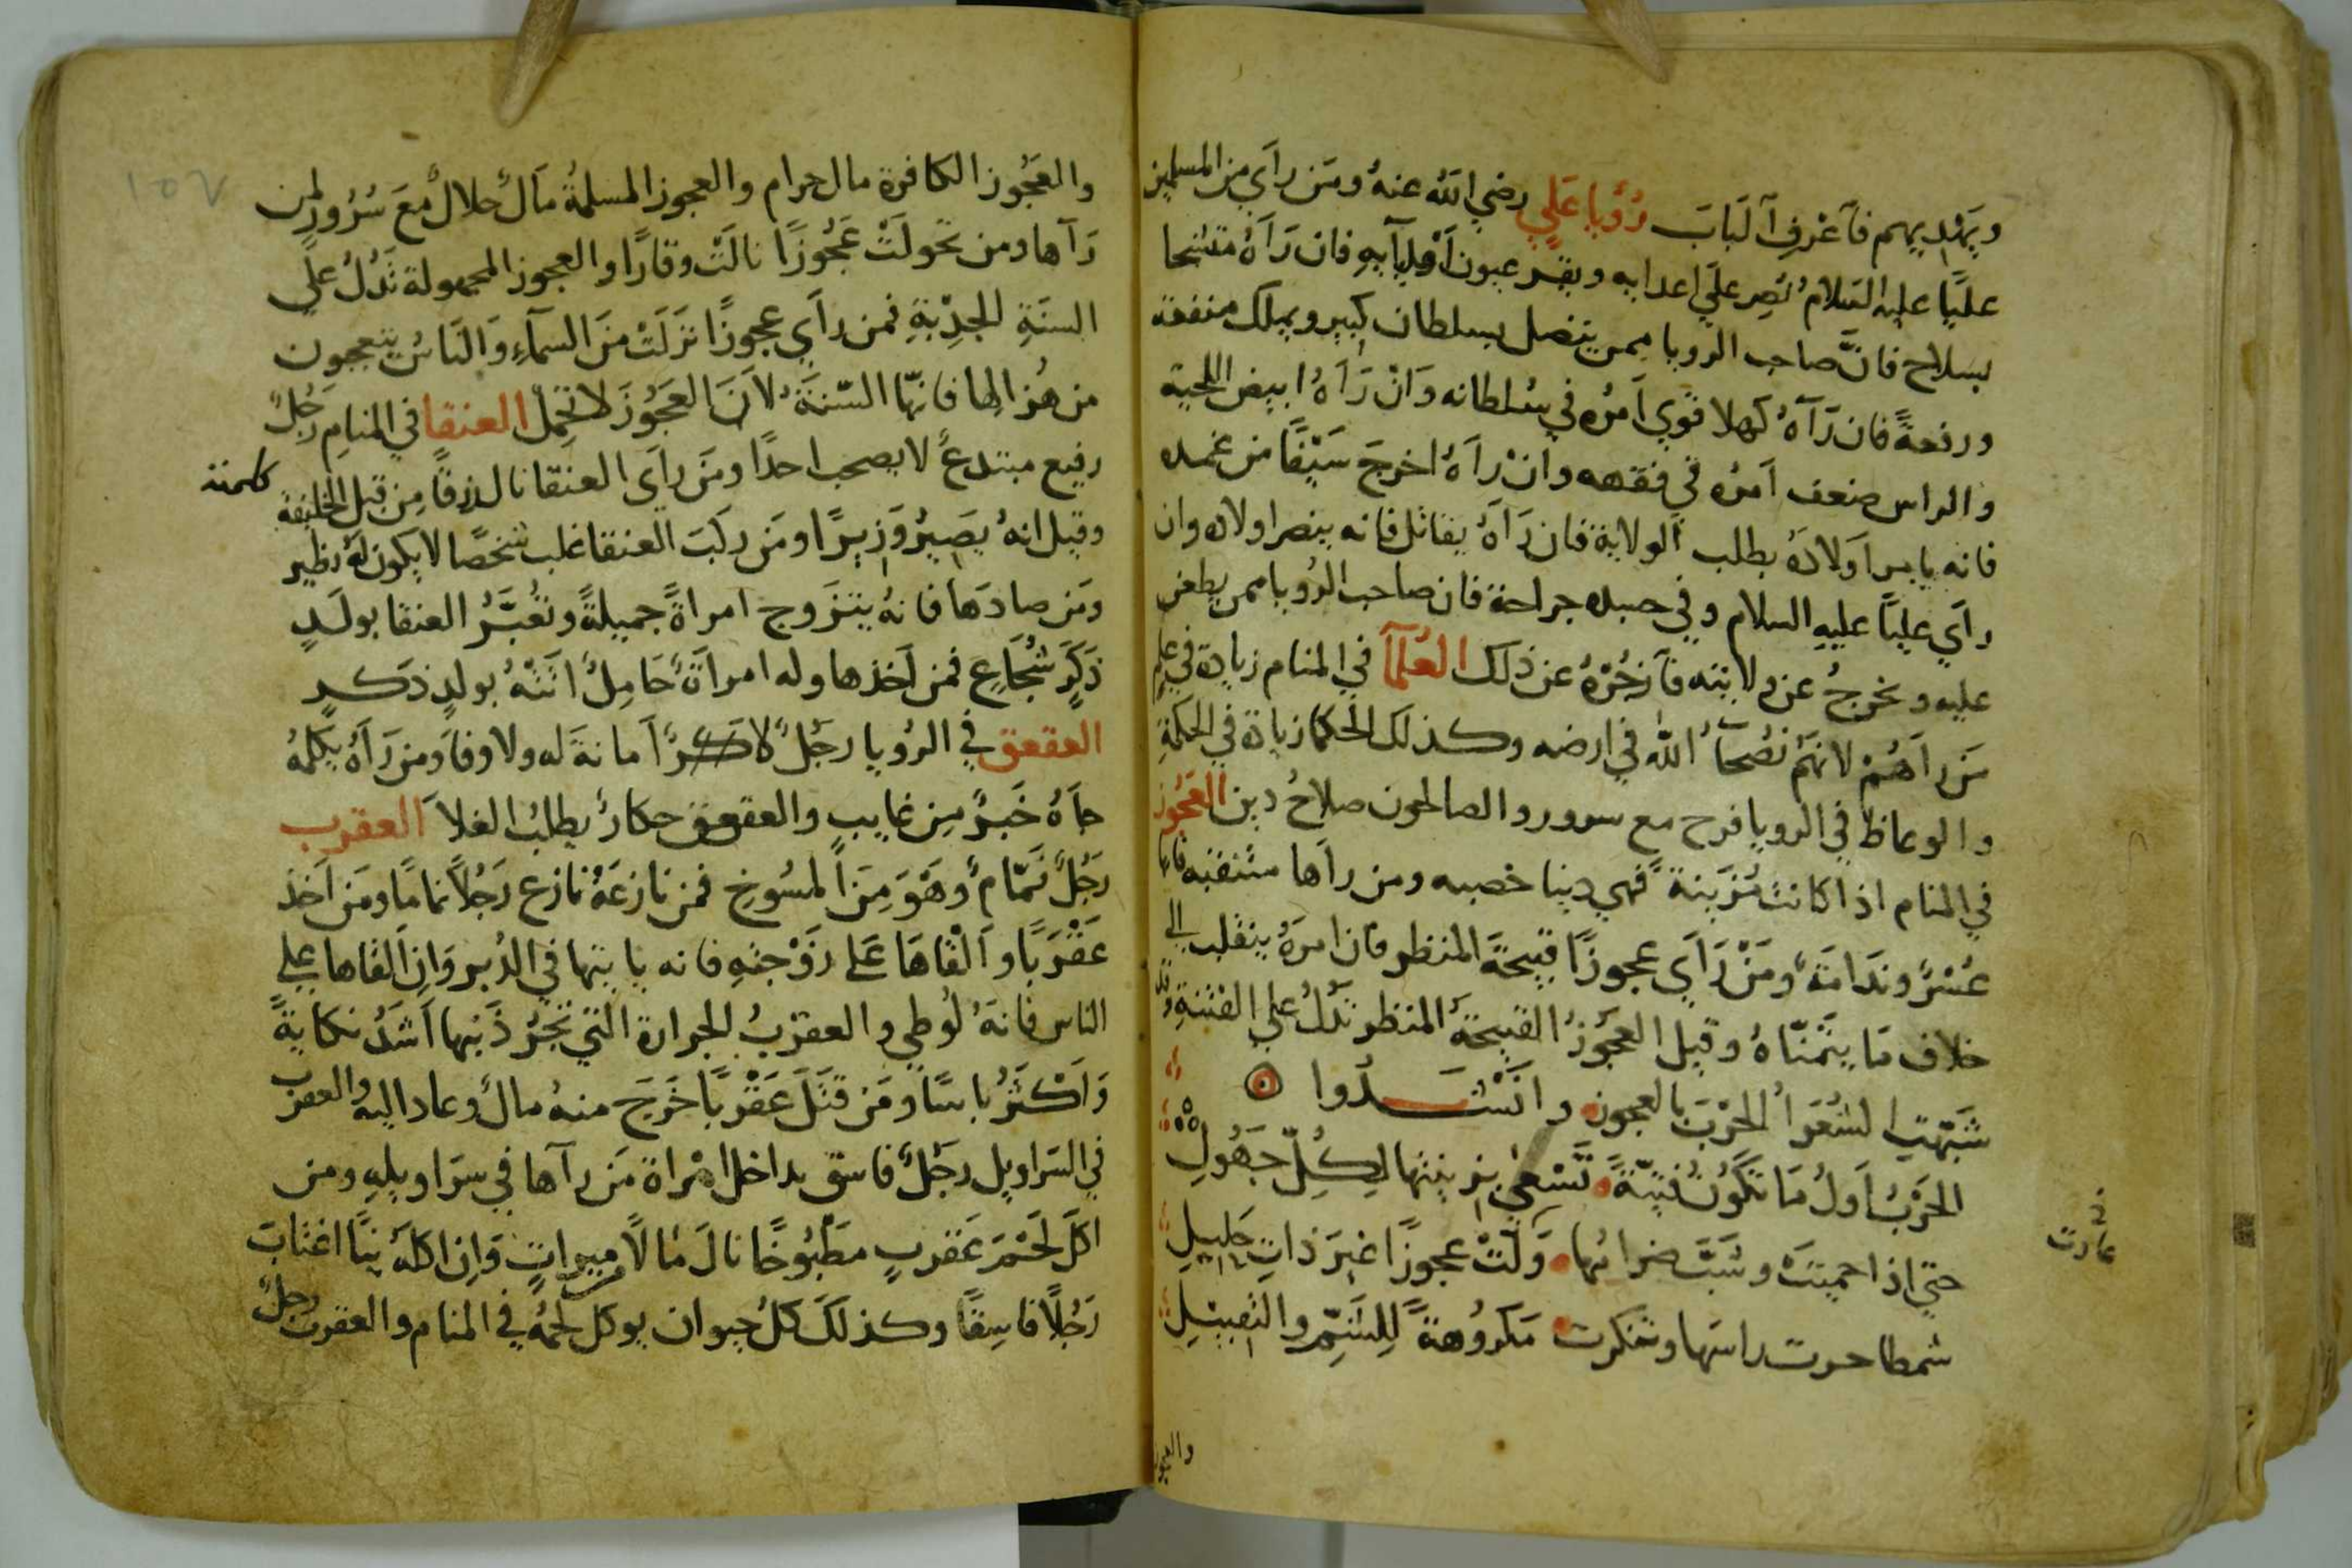 ويهديهم فاعرف الباب رؤيا علي رضي الله عنه ومن راي من المسلمين
عليًا عليه السلام نصر علي اعدايه وبقر عيون اوليآيه فان رآه متشحا
بسلاح فانّ صاحب الرويا ممن يتصل بسلطان كبير ويملك منفعة
ورفعةً فان رآه كهلا قوي امره في سلطانه وان رآه ابيض اللحية
والراس ضعف امره في فقهه وان رآه اخرج سيفًا من غمده
فانه يامر اولاده بطلب الولاية فان رآه يقاتل فانه ينصر اولاده وان
راي عليًا عليه السلام وفي جسده جراحة فان صاحب الرويا ممن يطعن
عليه ويخرج عن ولايته فازجره عن ذلك العلمآ في المنام زيادة في علم
من رآهم لانهم نصحآ الله في ارضه وكذلك الحكما زيادة في الحكمة
والوعاظ في الرويا فرح مع سرور والصالحون صلاح دين العجوز
في المنام اذا كانت مزينة فهي دنيا خصبه ومن رآها متنقبه فانها
عسر وندامة ومن راي عجوزًا قبيحة المنظر فان امره ينقلب الي
خلاف ما يتمناه وقيل العجوز القبيحة المنظر تدل علي الفتنة وقد
شبهت الشعرا الحرب بالعجوز وانشدوا
الحرب اول ما تكون فتيّة تسعي بزينتها لكل جهول
حتي اذا حميت وشب ضرامها ولت عجوزًا غير ذات حليل
شمطا جزت راسها وتنكرت مكروهة للشم والتقبيل
والعجوز
والعجوز الكافرة مال حرام والعجوز المسلمة مال حلال مع سرور لمن
رآها ومن تحولت عجوزًا نالت وقارًا والعجوز المجهولة تدل علي
السنة الجدبة فمن راي عجوزًا نزلت من السمآء والناس يتعجبون
من هزالها فانها السّنة لان العجوز لا تحمل العنقا في المنام رجل
رفيع مبتدع لا يصحب احدًا ومن راي العنقا نال رزقًا من قبل الخليفة
وقيل انه يصير وزيرًا ومن ركب العنقا غلب شخصًا لا يكون له نظير
ومن صادها فانه يتزوج امراة جميلة وتعبّر العنقا بولد
ذكر شجاع فمن اخذها وله امراة حامل اتته بولد ذكر
العقعق في الرويا رجل لا امانة له ولا وفا ومن رآه يكلمه
جاه خبر من غايب والعقعق حكار يطلب الغلا العقرب
رجل نمّام وهو من المسوخ فمن نازعه نازع رجلاً نمامًا ومن اخذ
عقربًا والقاها علي زوجته فانه ياتيها في الدبر وان القاها علي
الناس فانه لوطي والعقرب الجرارة التي تجر ذنبها اشد نكاية
واكثر باسًا ومن قتل عقربًا خرج منه مال وعاد اليه والعقرب
في السراويل رجل فاسق يداخل امراة من رآها في سراويله ومن
اكل لحم عقرب مطبوخًا نال مالاً ميراث وان اكله نيًا اغتاب
رجلاً فاسقًا وكذلك كل حيوان يوكل لحمه في المنام والعقرب رجل